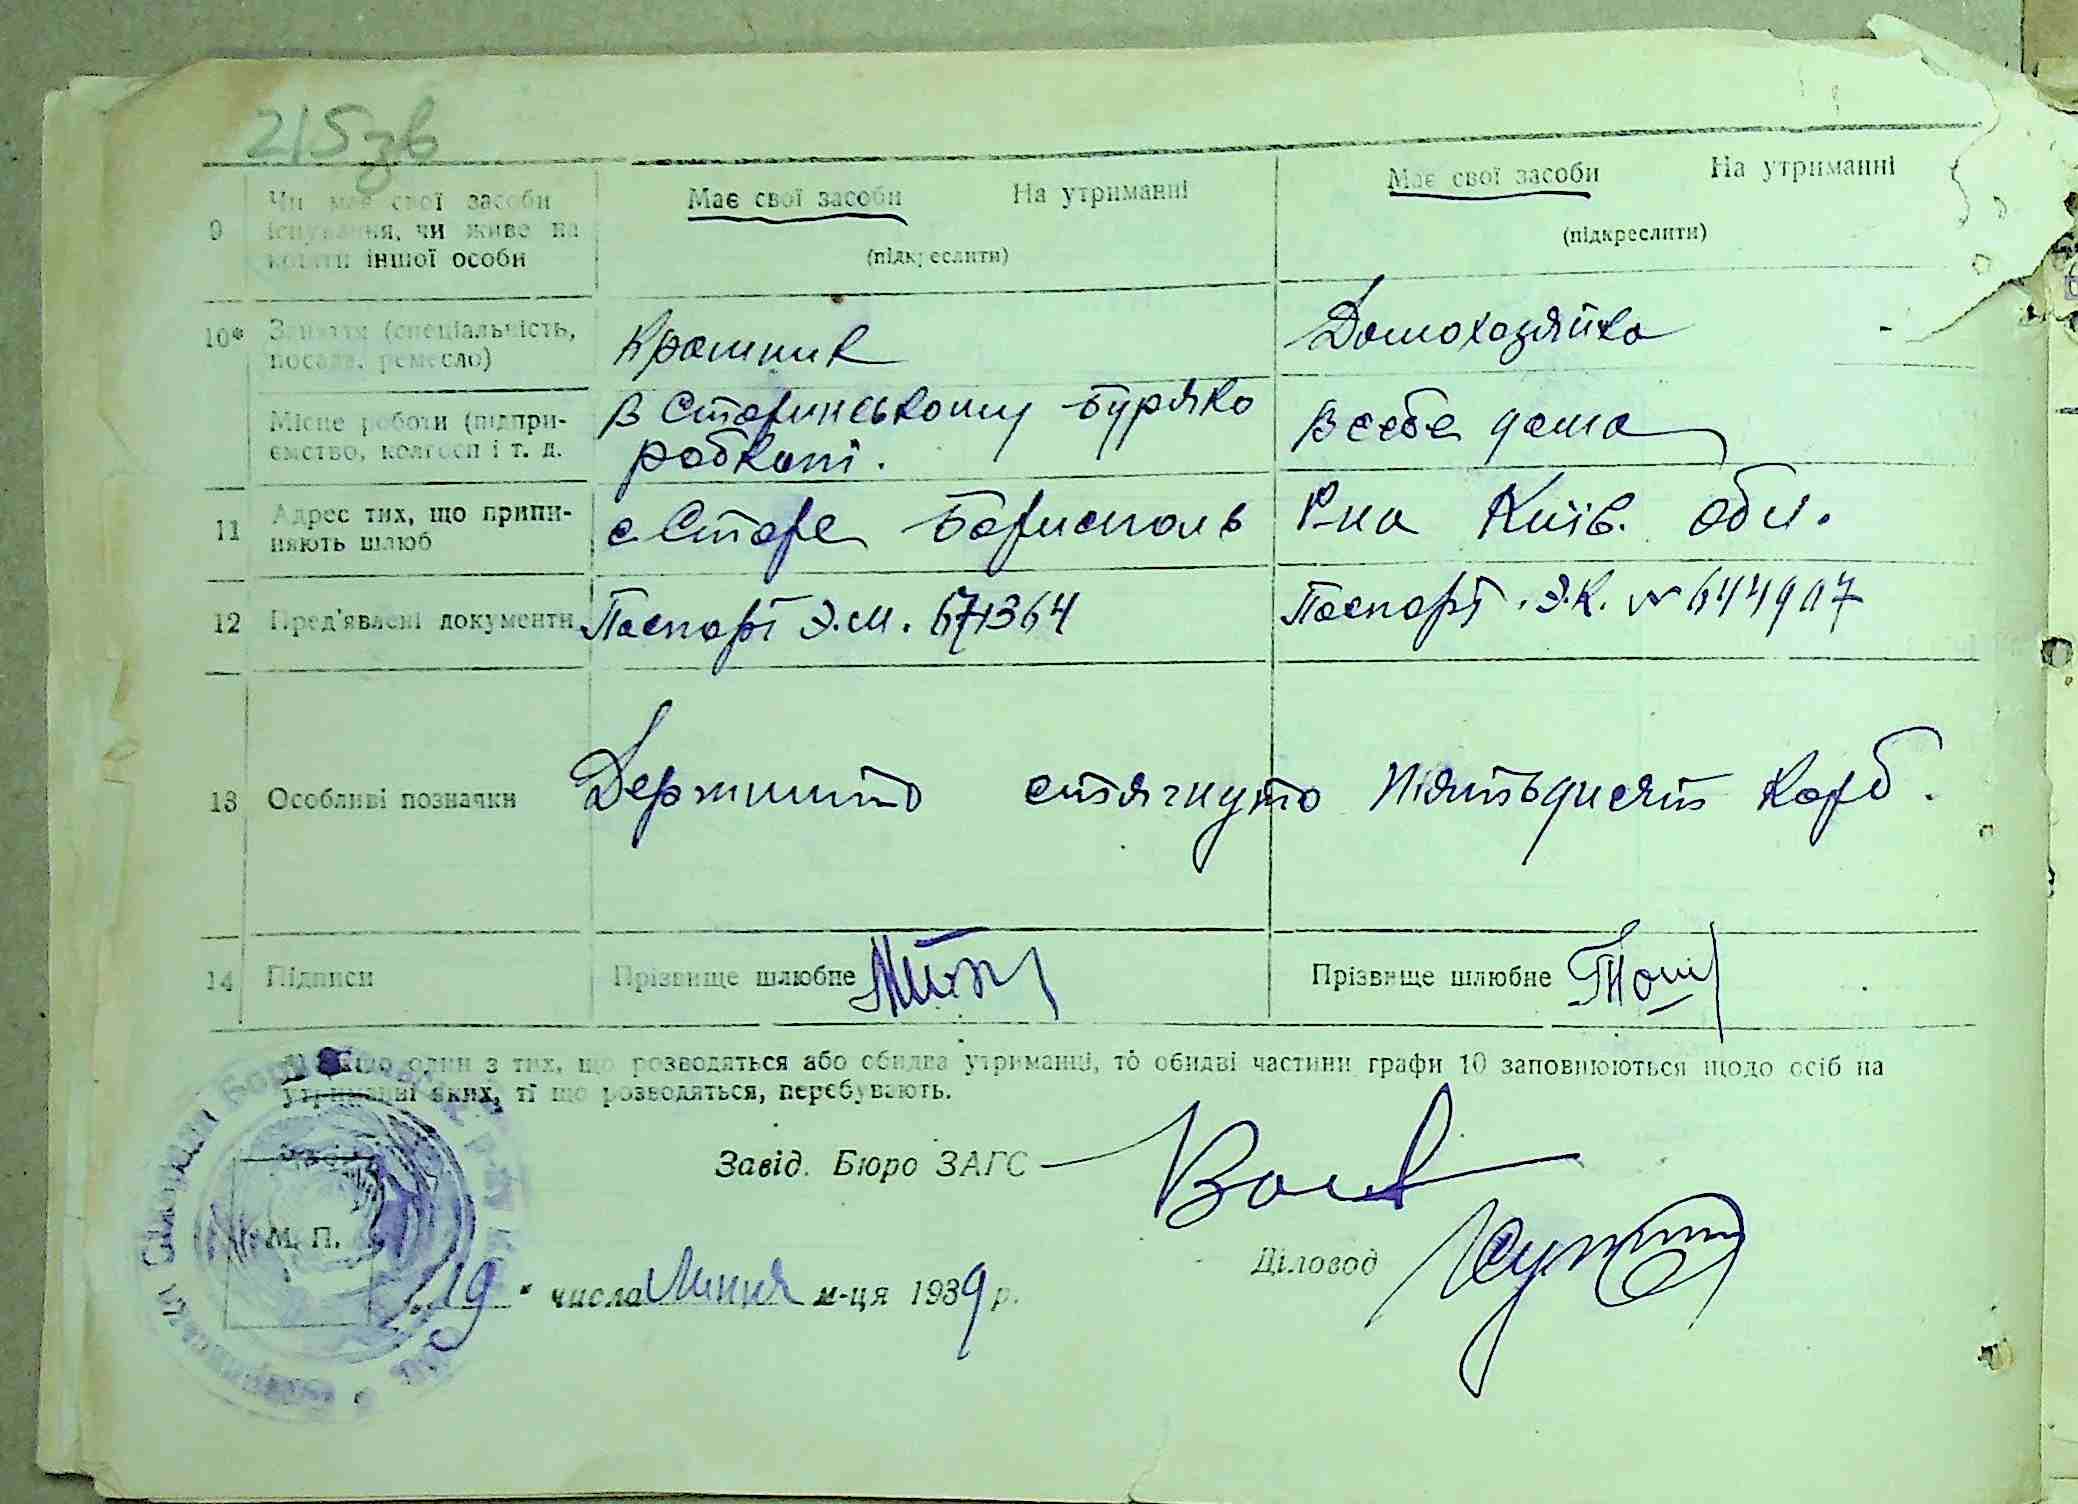 215зв
9 Чи має свої засоби існування, чи живе на кошти іншої особи
Має свої засоби На утриманні
(підкреслити)
Має свої засоби На утриманні
(підкреслити)
10* Заняття (спеціальність, посада, ремесло)
Крамник
Домохазяйка
Місце роботи (підпри-
ємство, колгосп і т. д.
В Старинському буряко
робкопі.
В себе дома
11 Адрес тих, що припи-
няють шлюб
с Старе Бориспольь
Р-на Київ. обл.
12 Пред'явлені документи
Паспорт Э.М. 671364
Паспорт Э.К. № 644907
13 Особливі позначки
Держмито стягнуто пятьдисят карб.
14 Підписи
Прізвище шлюбне
Прізвище шлюбне
*) Якщо один з тих, що розводяться або обидва утриманці, то обидві частини графи 10 заповнюються щодо осіб на
утриманні яких, ті що розводяться, перебувають.
Завід. Бюро ЗАГС
М. П.
Діловод
19 " числа Липня м-ця 1939 р.